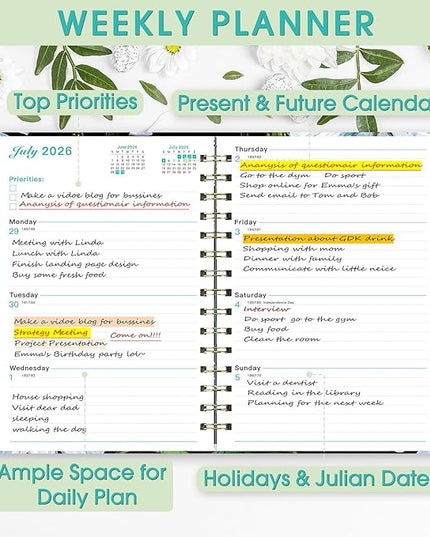 WEEKLY PLANNER
Top Priorities
Present & Future Calenda
July 2026
June 2026
July 2026
Priorities:
Make a vidoe blog for bussines
Ananysis of questionair information
Monday
29
Meeting with Linda
Lunch with Linda
Finish landing page design
Buy some fresh food
Tuesday
30
Make a vidoe blog for bussines
Strategy Meeting
Come on!!!!
Project Presentation
Emma's Birthday party lol~
Wednesday
1
House shopping
Visit dear dad
sleeping
walking the dog
Thursday
2
Ananysis of questionair information
Go to the dym Do sport
Shop online for Emma's gift
Send email to Tom and Bob
Friday
3
Presentation about GDK drink
Shopping with mom
Dinner with family
Communicate with little neice
Saturday
4
Independence Day
Interview
Do sport go to the gym
Buy food
Clean the room
Sunday
5
Visit a dentist
Reading in the library
Planning for the next week
Ample Space for
Daily Plan
Holidays & Julian Date